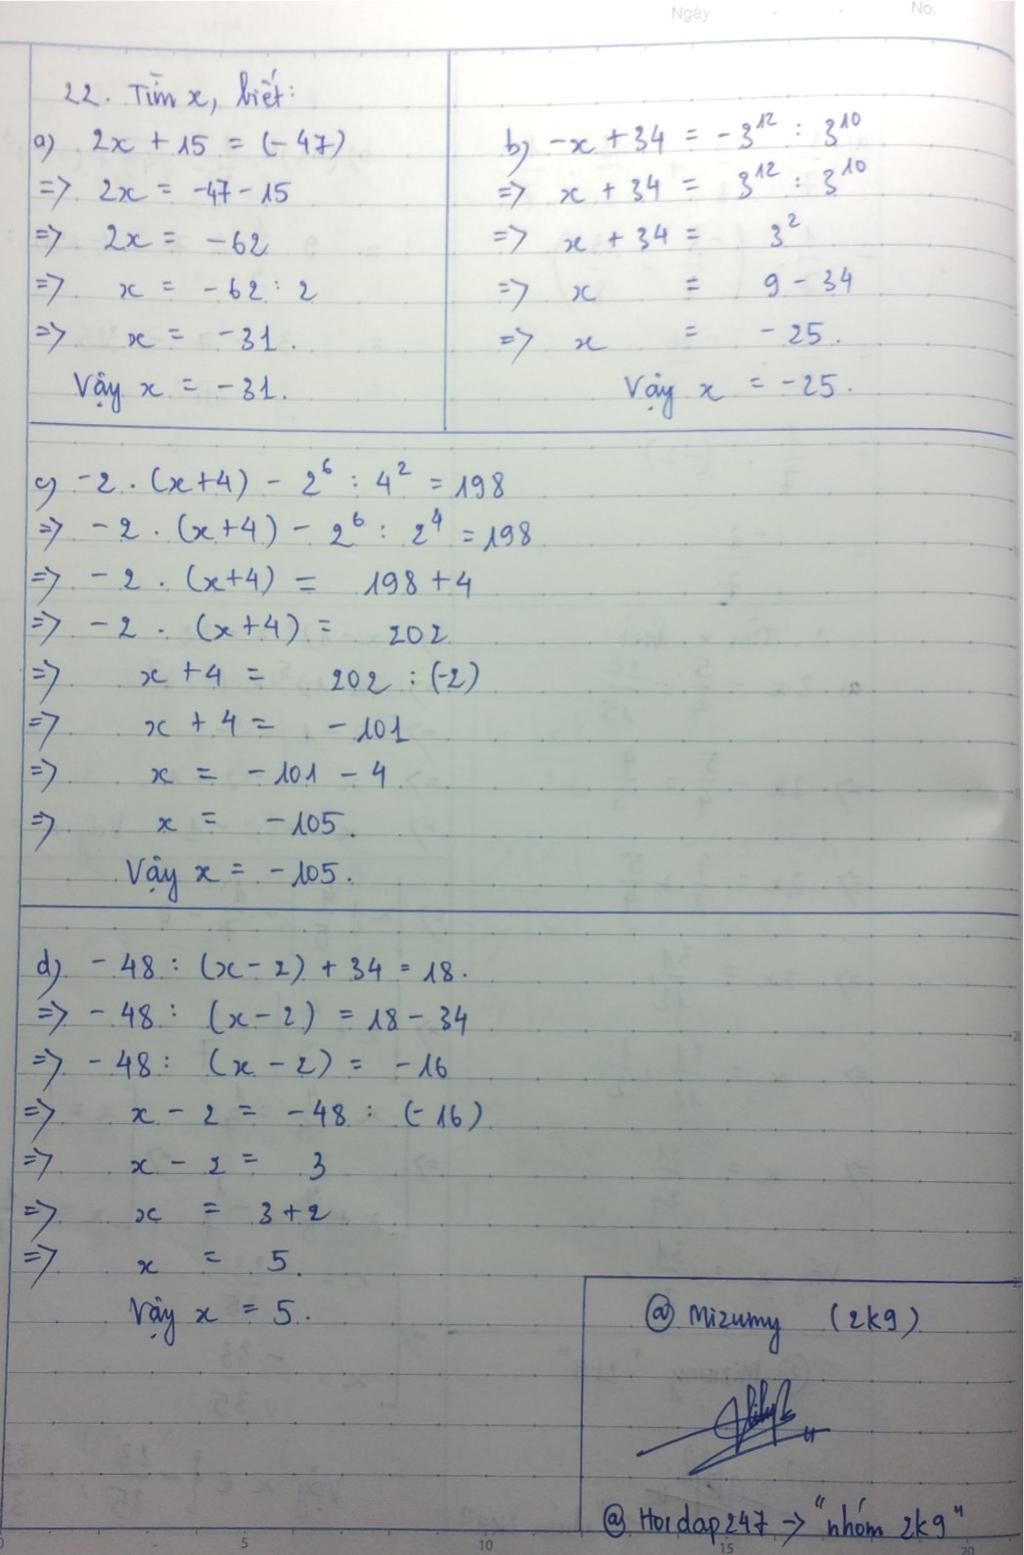 Ngày
No.
22. Tìm x, biết:
a) 2x + 15 = (-47)
=> 2x = -47 - 15
=> 2x = -62
=> x = -62 : 2
=> x = -31.
Vậy x = -31.
b) -x + 34 = -3¹² : 3¹⁰
=> x + 34 = 3¹² : 3¹⁰
=> x + 34 = 3²
=> x = 9 - 34
=> x = -25.
Vậy x = -25.
c) -2 . (x+4) - 2⁶ : 4² = 198
=> -2 . (x+4) - 2⁶ : 2⁴ = 198
=> -2 . (x+4) = 198 + 4
=> -2 . (x+4) = 202
=> x + 4 = 202 : (-2)
=> x + 4 = -101
=> x = -101 - 4
=> x = -105.
Vậy x = -105.
d) -48 : (x - 2) + 34 = 18.
=> -48 : (x - 2) = 18 - 34
=> -48 : (x - 2) = -16
=> x - 2 = -48 : (-16)
=> x - 2 = 3
=> x = 3 + 2
=> x = 5.
Vậy x = 5.
@ Mizumy (2k9)
@ Hoidap247 -> "nhóm 2k9"
5
10
15
20